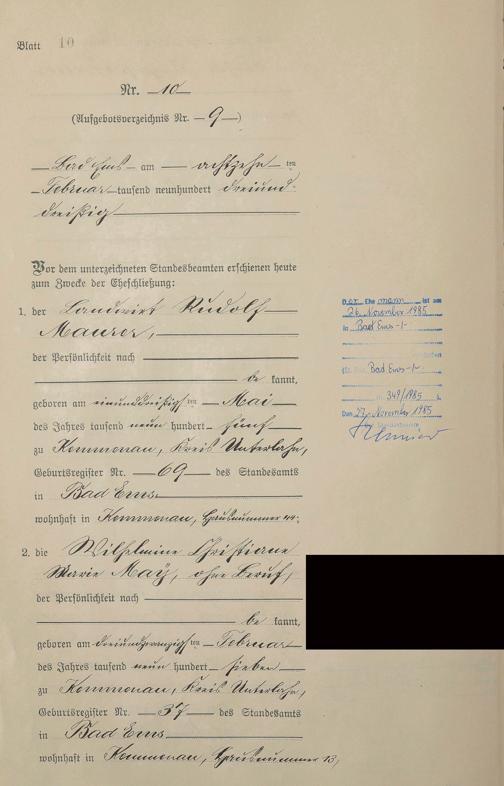 Blatt 10
Nr. 10
(Aufgebotsverzeichnis Nr. 9)
Bad Ems am achtzehn ten
Februar tausend neunhundert dreiund-
dreißig
Vor dem unterzeichneten Standesbeamten erschienen heute
zum Zwecke der Eheschließung:
1. der Landwirt Rudolf
Maurer,
der Persönlichkeit nach
be kannt,
geboren am einunddreißigsten Mai
des Jahres tausend neun hundert fünf
zu Kemmenau, Kreis Unterlahn,
Geburtsregister Nr. 69 des Standesamts
in Bad Ems
wohnhaft in Kemmenau, Hausnummer 44;
2. die Wilhelmine Christiane
Marie May, ohne Beruf,
der Persönlichkeit nach
be kannt,
geboren am dreiundzwanzigsten Februar
des Jahres tausend neun hundert sieben
zu Kemmenau, Kreis Unterlahn,
Geburtsregister Nr. 37 des Standesamts
in Bad Ems
wohnhaft in Kemmenau, Hausnummer 13,
Der Ehemann ist am
26. November 1985
in Bad Ems -/-
Bad Ems -/-
349/1985
Den 27. November 1985